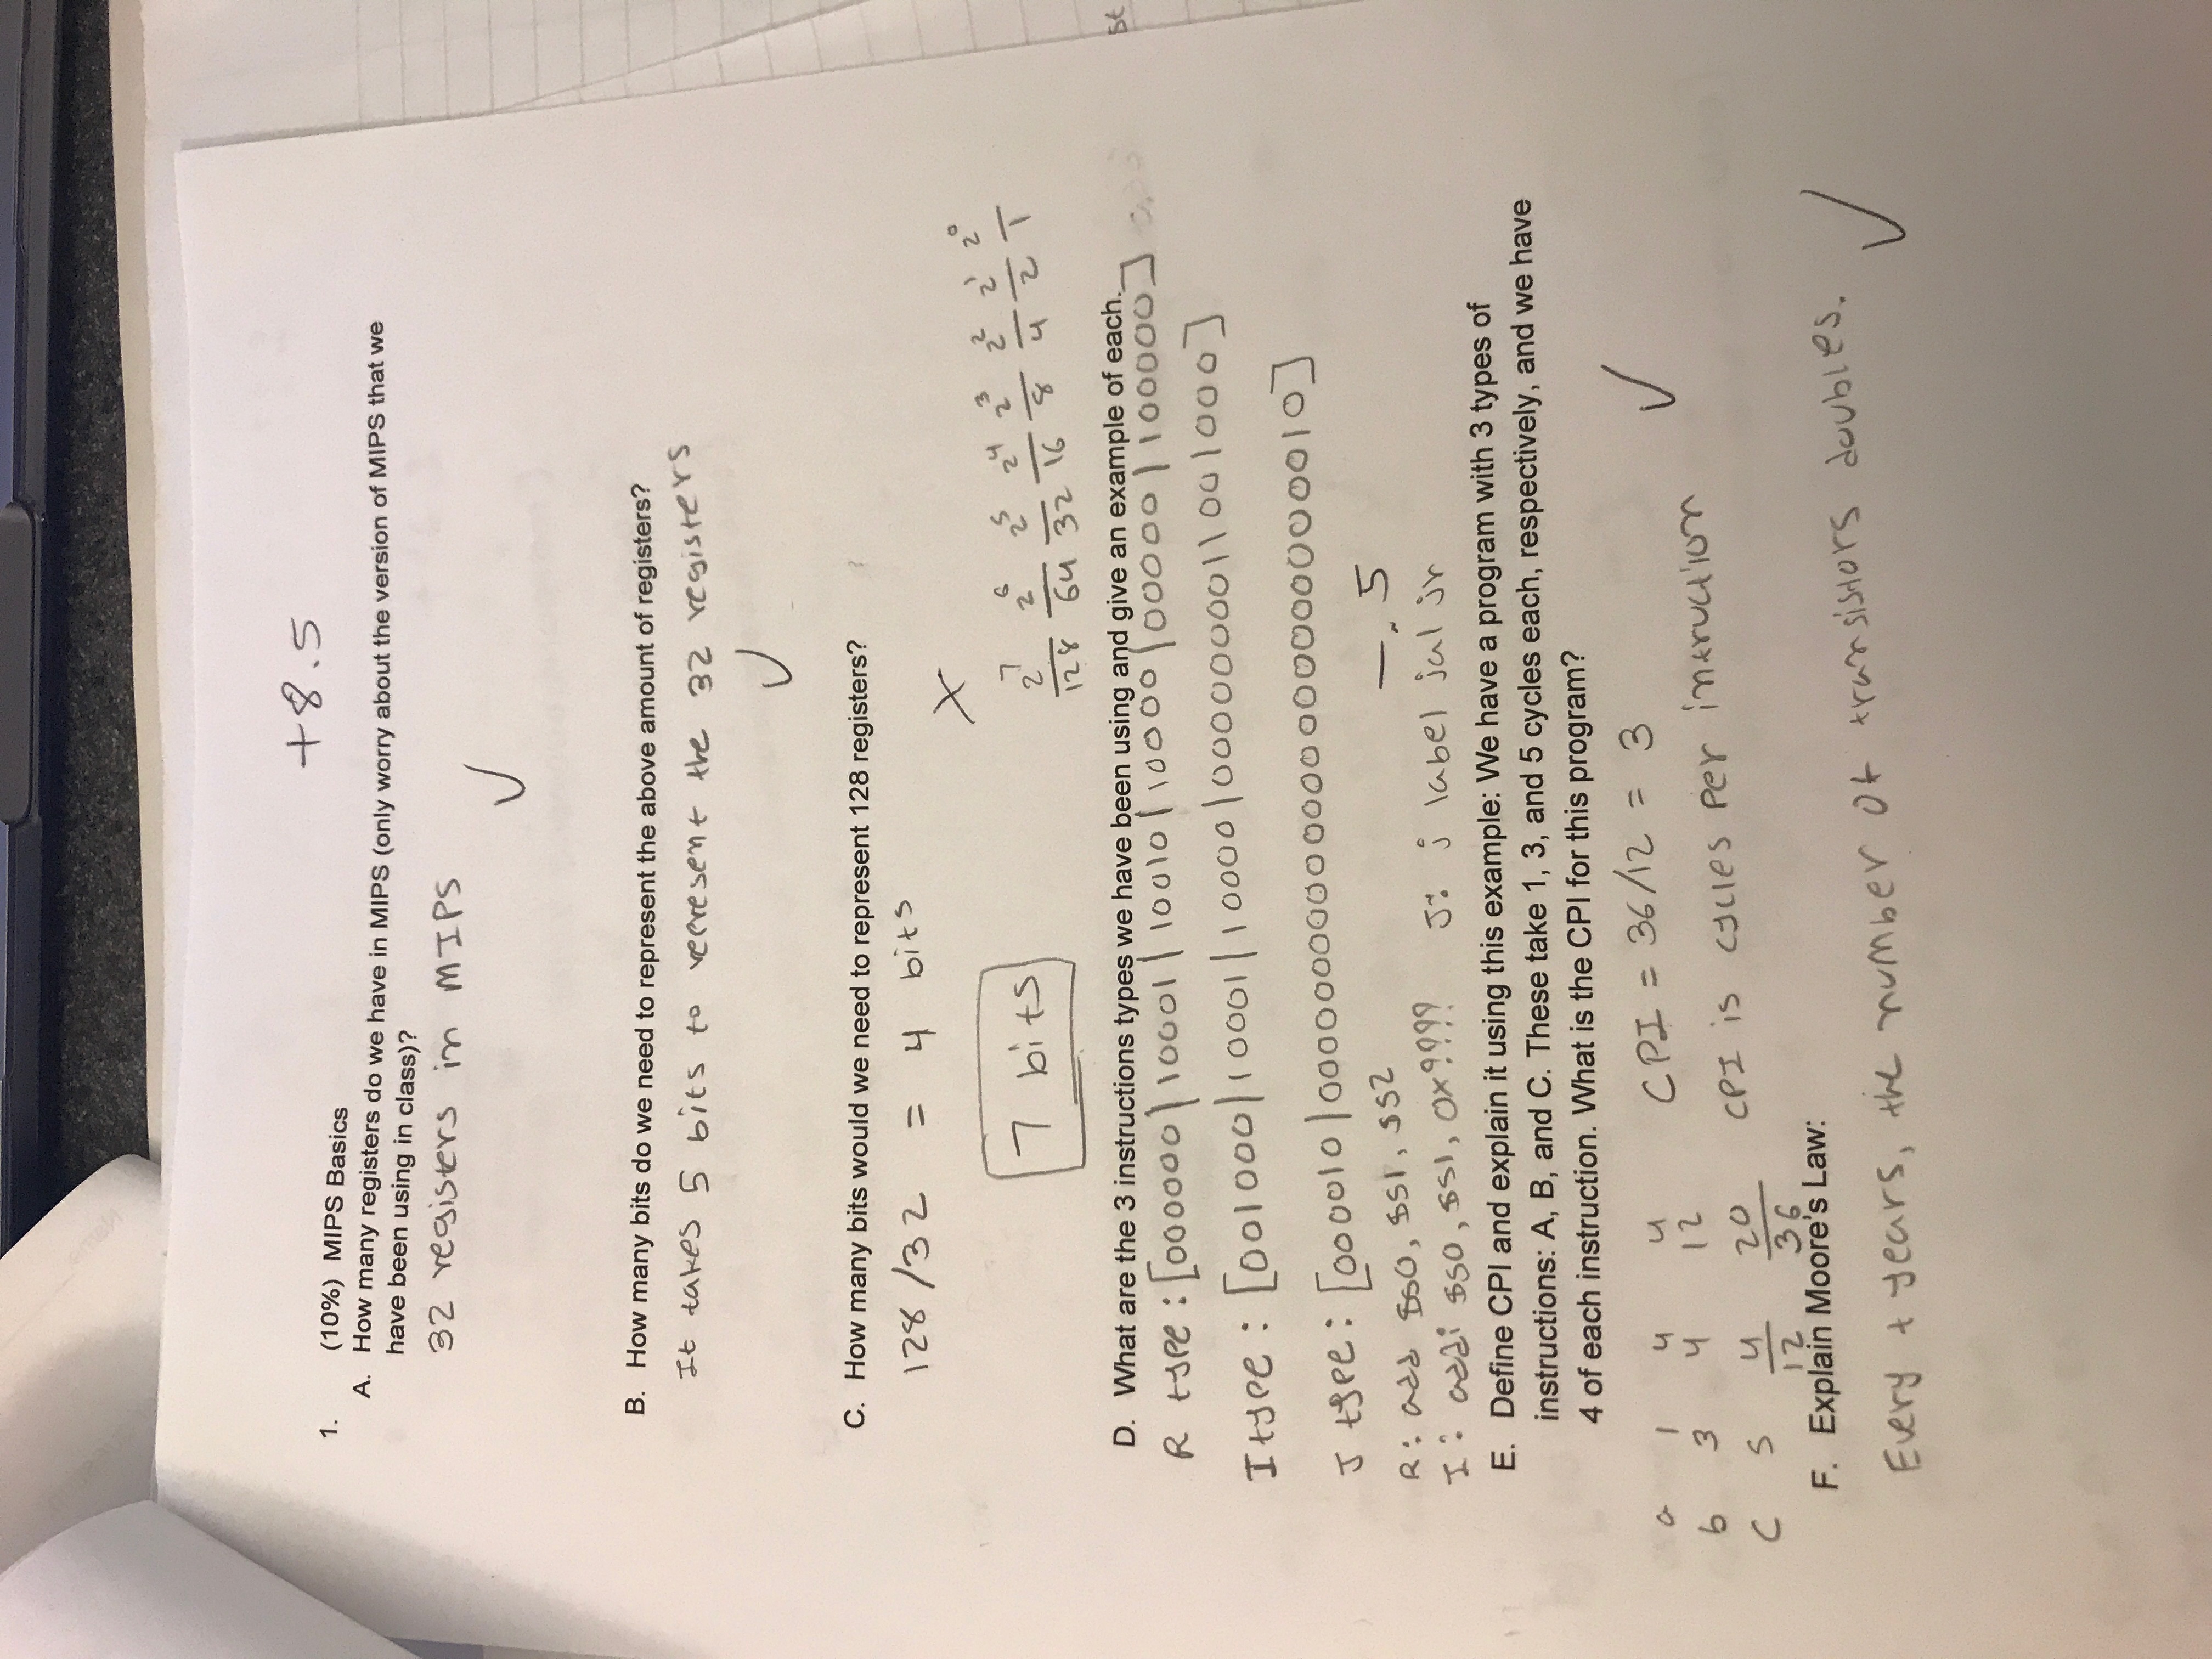 +8.5
1. (10%) MIPS Basics
A. How many registers do we have in MIPS (only worry about the version of MIPS that we
have been using in class)?
32 registers in MIPS
✓
B. How many bits do we need to represent the above amount of registers?
It takes 5 bits to represent the 32 registers
✓
C. How many bits would we need to represent 128 registers?
128/32 = 4 bits
X
7 bits
2^7 2^6 2^5 2^4 2^3 2^2 2^1 2^0
128 64 32 16 8 4 2 1
D. What are the 3 instructions types we have been using and give an example of each.
R type: [000000|10001|10010|10000|00000|100000]
I type: [001000|10001|10000|0000000011001000]
J type: [000010|00000000000000000000000010]
-.5
R: add $s0, $s1, $s2
I: addi $s0, $s1, 0x???? J: j label jal jr
E. Define CPI and explain it using this example: We have a program with 3 types of
instructions: A, B, and C. These take 1, 3, and 5 cycles each, respectively, and we have
4 of each instruction. What is the CPI for this program?
a 1 4 4 CPI = 36/12 = 3 ✓
b 3 4 12
C 5 4 20 CPI is cycles per intruction
12 36
F. Explain Moore's Law:
Every t years, the number of transistors doubles. ✓